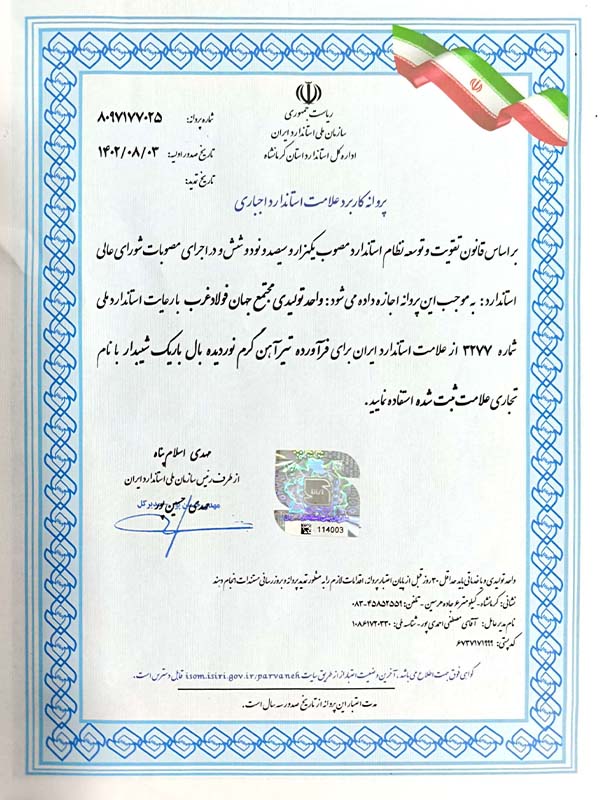 ریاست جمهوری
سازمان ملی استاندارد ایران
اداره کل استاندارد استان کرمانشاه
شماره پروانه: ۸۰۹۷۱۷۷۰۲۵
تاریخ صدور اولیه: ۱۴۰۲/۰۸/۰۳
تاریخ تمدید:
پروانه کاربرد علامت استاندارد اجباری
بر اساس قانون تقویت و توسعه نظام استاندارد مصوب یکهزار و سیصد و نود و شش و در اجرای مصوبات شورای عالی
استاندارد: به موجب این پروانه اجازه داده می شود: واحد تولیدی مجتمع جهان فولاد غرب با رعایت استاندارد ملی
شماره ۳۲۷۷ از علامت استاندارد ایران برای فرآورده تیرآهن گرم نوردیده بال باریک شیبدار با نام
تجاری علامت ثبت شده استفاده نمایید.
مهدی اسلام پناه
از طرف رئیس سازمان ملی استاندارد ایران
مهدی حسین پور
مدیر کل
114003
واحد تولیدی و یا خدماتی باید حداقل ۳۰ روز قبل از پایان اعتبار پروانه، اقدامات لازم را به منظور تمدید پروانه و بروزرسانی مستندات انجام دهد
نشانی: کرمانشاه - کیلومتر ۶ جاده هرسین - تلفن: ۴۵۸۵۲۵۵۹-۰۸۳
نام مدیرعامل: آقای مصطفی احمدی پور - شناسه ملی: ۱۰۸۶۱۷۲۰۳۳۰
کد پستی: ۶۷۳۷۱۷۱۹۹۹
گواهی فوق جهت اطلاع می باشد، آخرین وضعیت اعتبار از طریق سایت isom.isiri.gov.ir/parvaneh قابل دسترس است.
مدت اعتبار این پروانه از تاریخ صدور سه سال است.